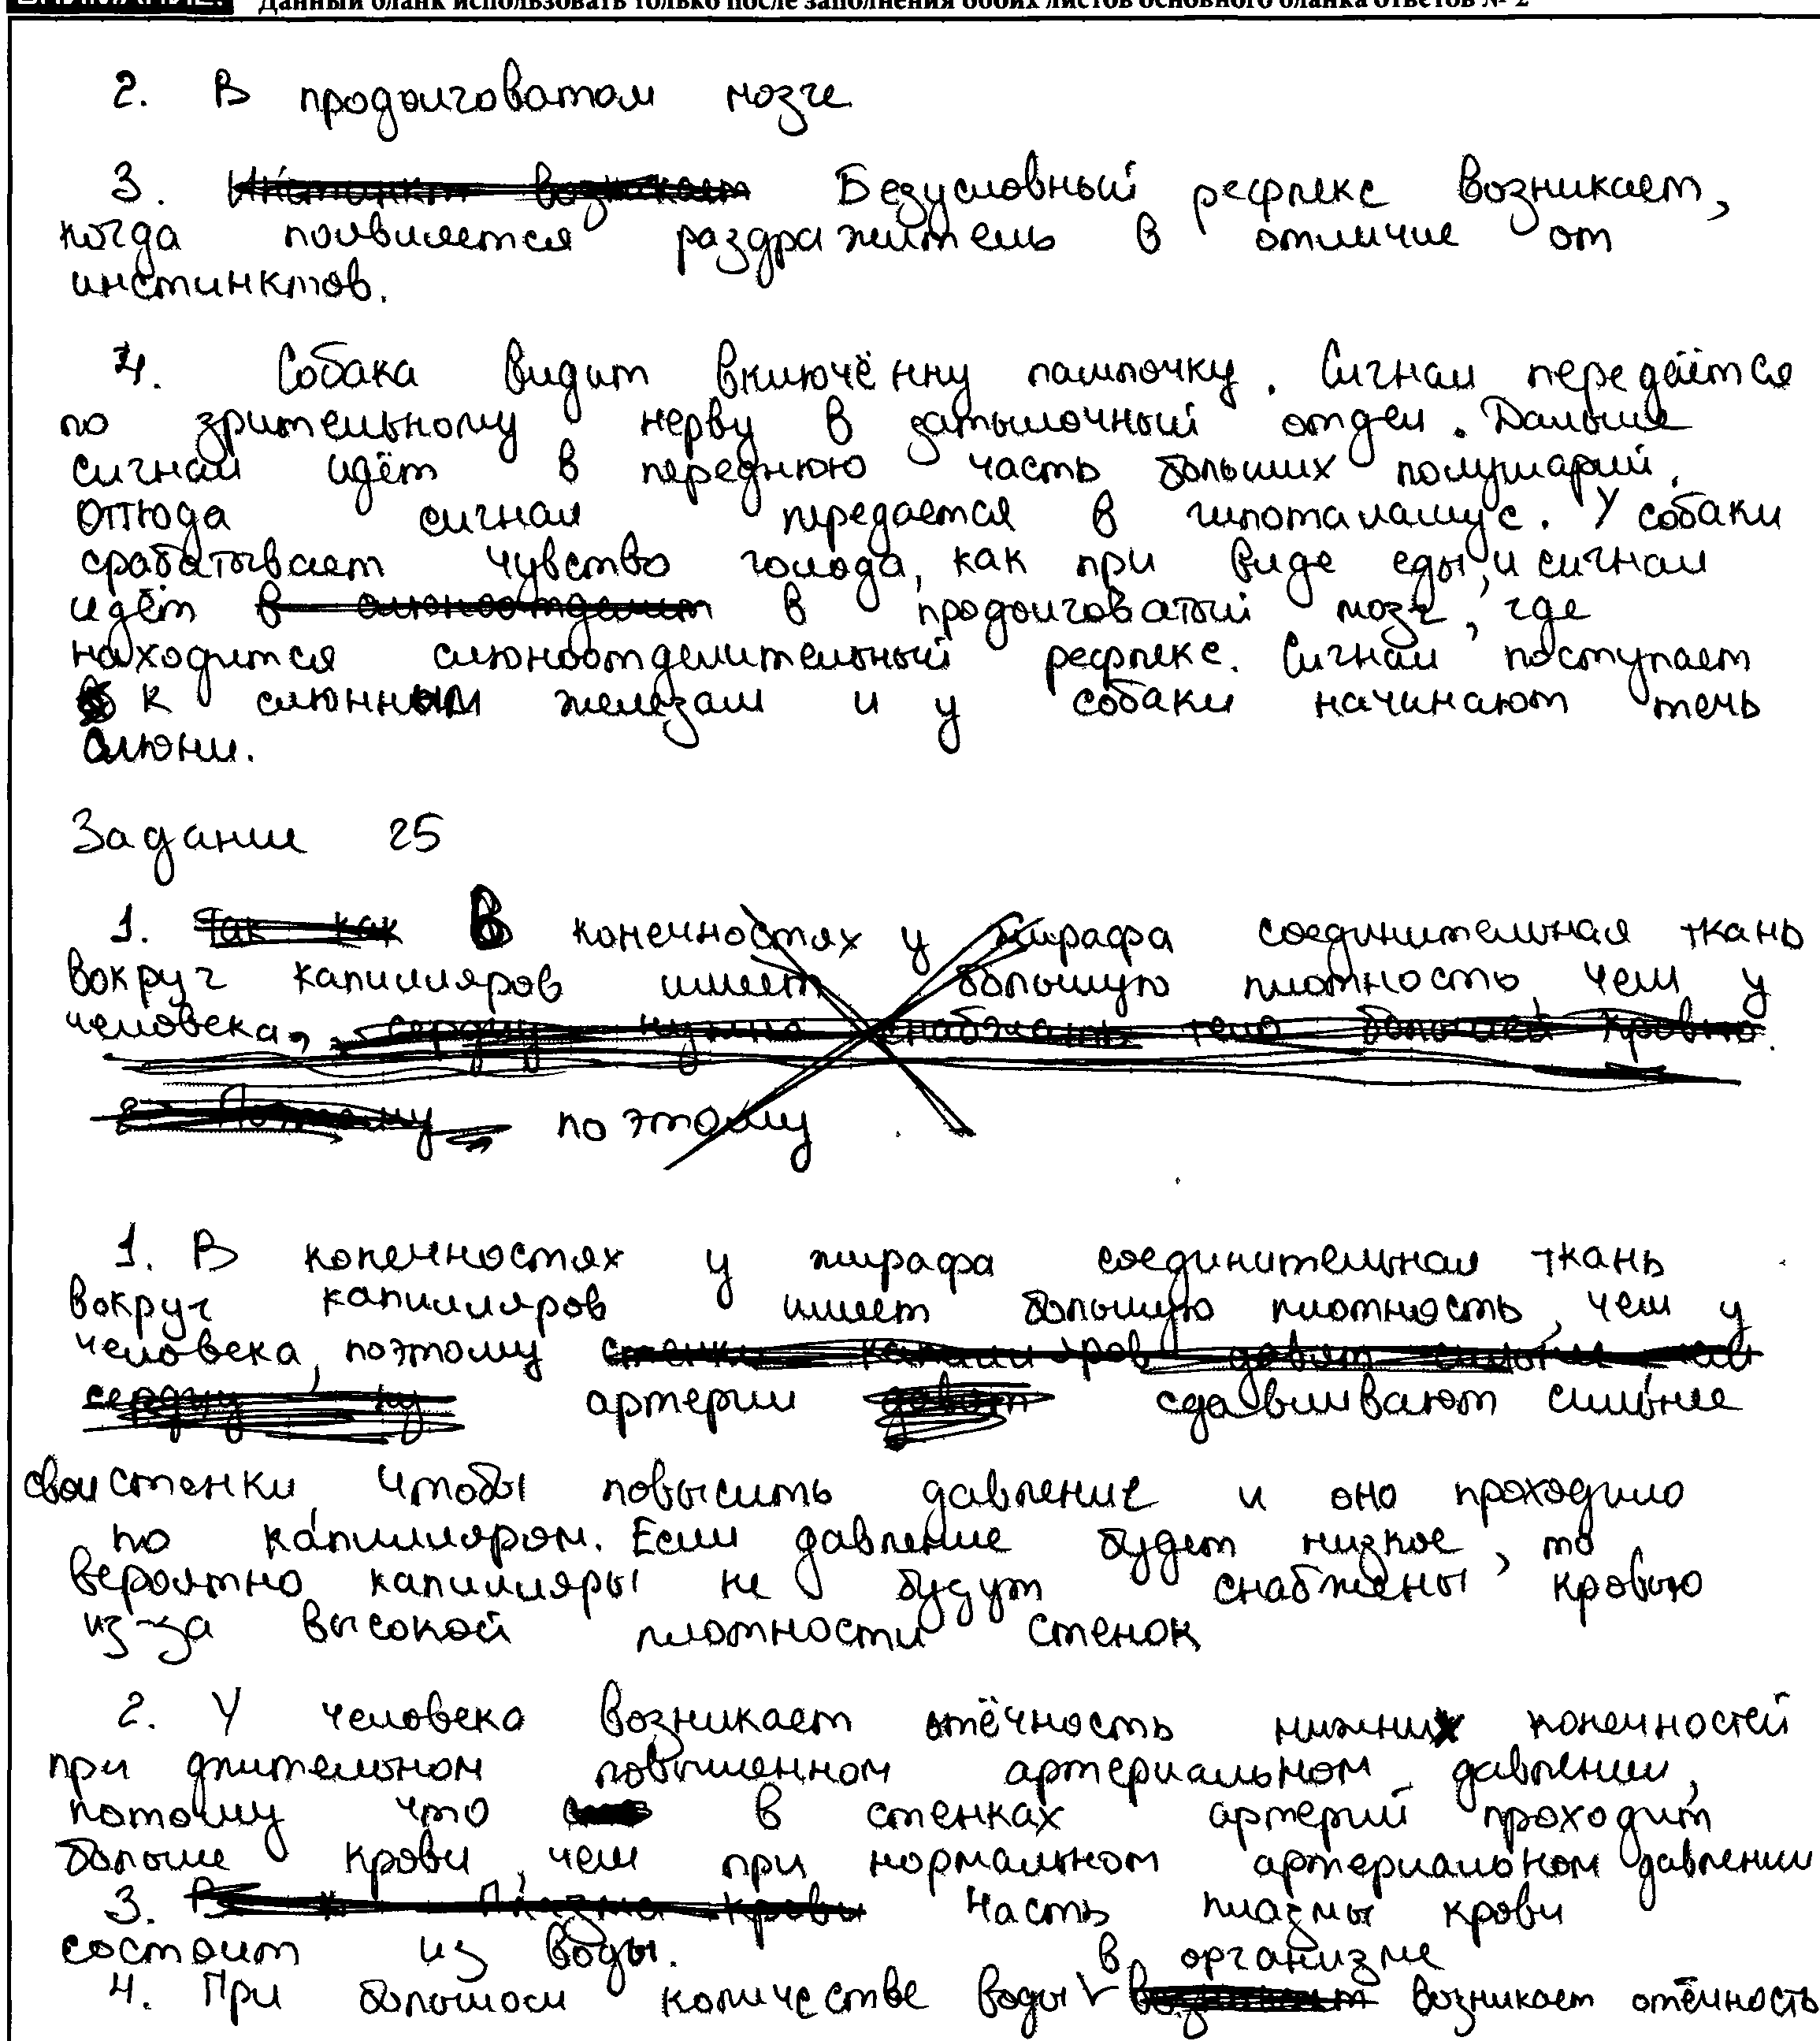 Данный бланк использовать только после заполнения обоих листов основного бланка ответов № 2
2. В продолговатом мозге
3. Инстинкт возникает Безусловный рефлекс возникает,
когда появляется раздражитель в отличие от
инстинктов.
4. Собака видит включённу лампочку. Сигнал передаётся
по зрительному нерву в затылочный отдел. Дальше
сигнал идёт в переднюю часть больших полушарий.
Оттюда сигнал передается в гипоталамус. У собаки
срабатывает чувство голода, как при виде еды, и сигнал
идёт в слюноотделит в продолговатый мозг, где
находится слюноотделительный рефлекс. Сигнал поступает
к слюнным железам и у собаки начинают течь
слюни.
Задание 25
1. Так как В конечностях у жирафа соединительная ткань
вокруг капилляров имеет большую плотность, чем у
человека, сердцу нужно снабжать тело большей кровью.
2. Поэтому поэтому
1. В конечностях у жирафа соединительная ткань
вокруг капилляров имеет большую плотность, чем у
человека, поэтому стенки капилляров давят сильнее
сердцу ну артерии давят сдавливают сильнее
свои стенки, чтобы повысить давление и оно проходило
по капилляром. Если давление будет низкое, то
вероятно капилляры не будут снабжены кровью
из-за высокой плотности стенок
2. У человека возникает отёчность нижних конечностей
при длительном повышенном артериальном давлении,
потому что в стенках артерий проходит
больше крови, чем при нормальном артериальном давлении
3. Плазма крови Часть плазмы крови
состоит из воды.
4. При большом количестве воды в организме возникает отёчность